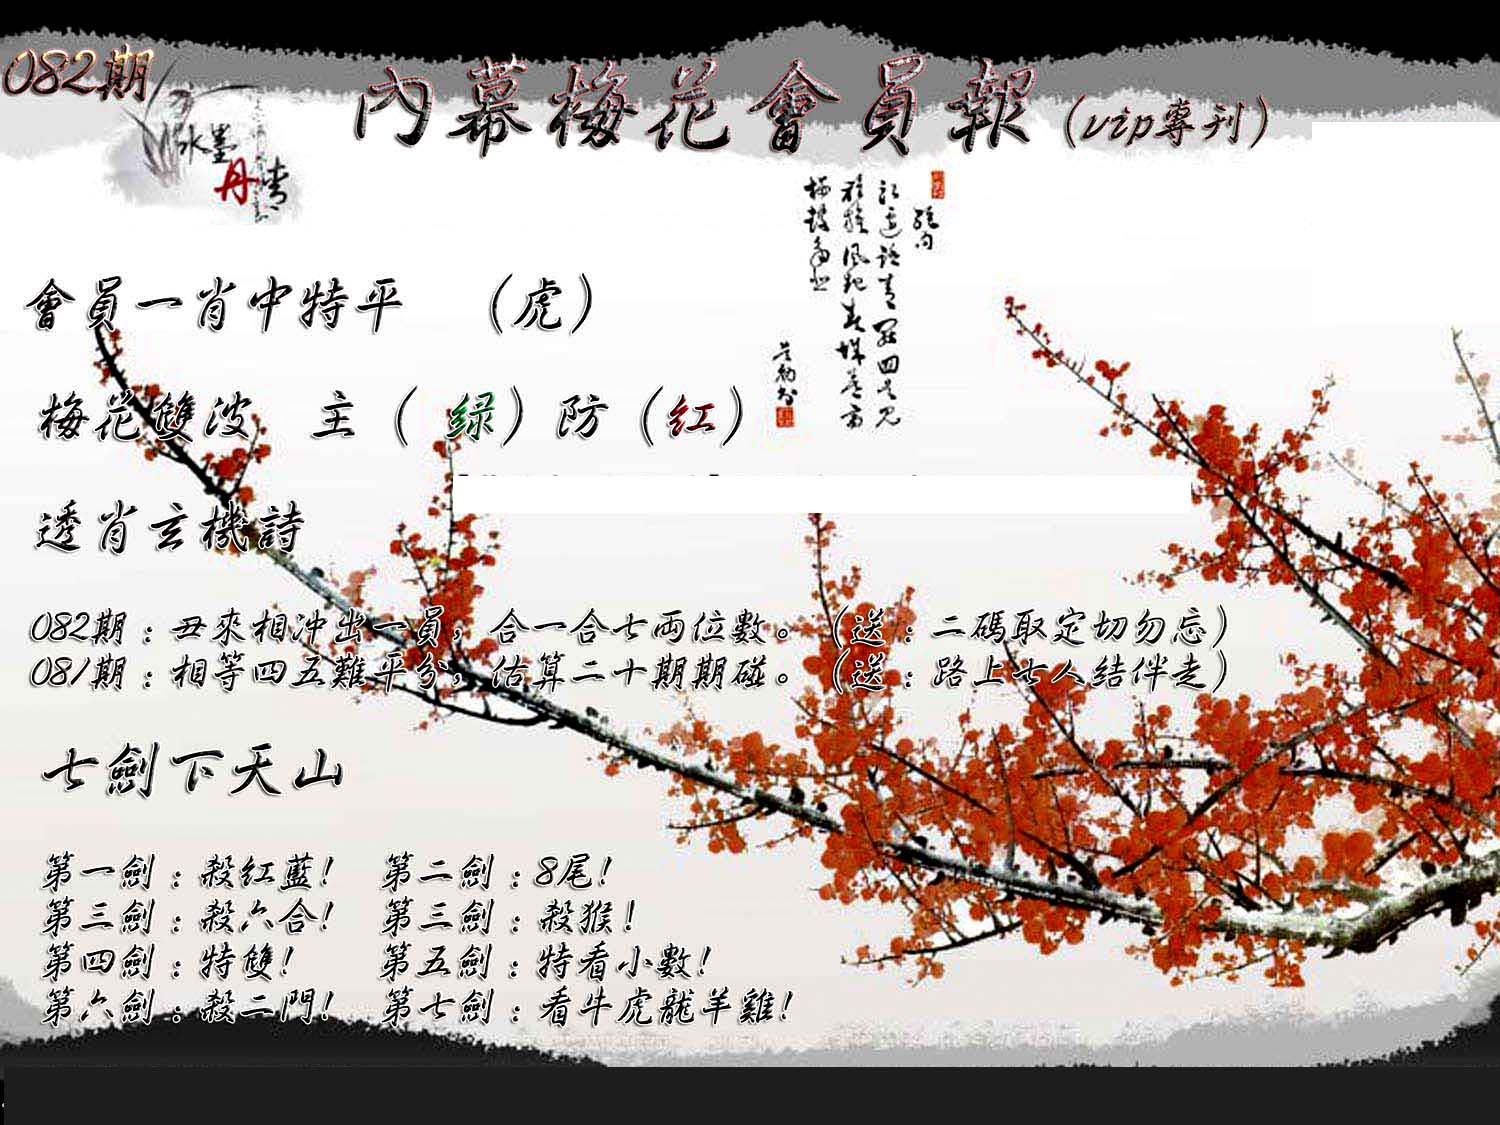 082期
內幕梅花會員報（vip專刊）
水墨
丹青
會員一肖中特平 （虎）
梅花雙波 主（綠）防（紅）
透肖玄機詩
082期：丑來相冲出一員，合一合七兩位數。（送：二碼取定切勿忘）
081期：相等四五難平分，估算二十期期碰。（送：路上七人结伴走）
七劍下天山
第一劍：殺红藍！ 第二劍：8尾！
第三劍：殺六合！ 第三劍：殺猴！
第四劍：特雙！ 第五劍：特看小數！
第六劍：殺二門！ 第七劍：看牛虎龍羊雞！